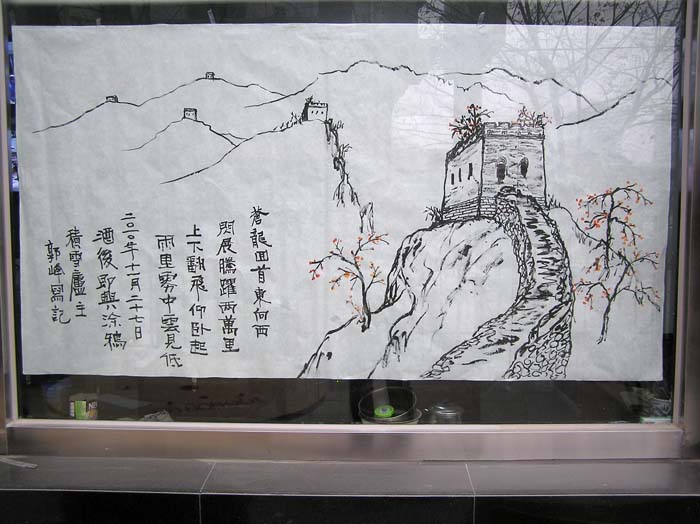 蒼龍回首東向西
閃展騰躍兩萬里
上下翻飛仰卧起
雨里雾中雲見低
二〇一〇年十一月二十七日
酒後即興涂鴉
積雪廬主
郭峰寫記